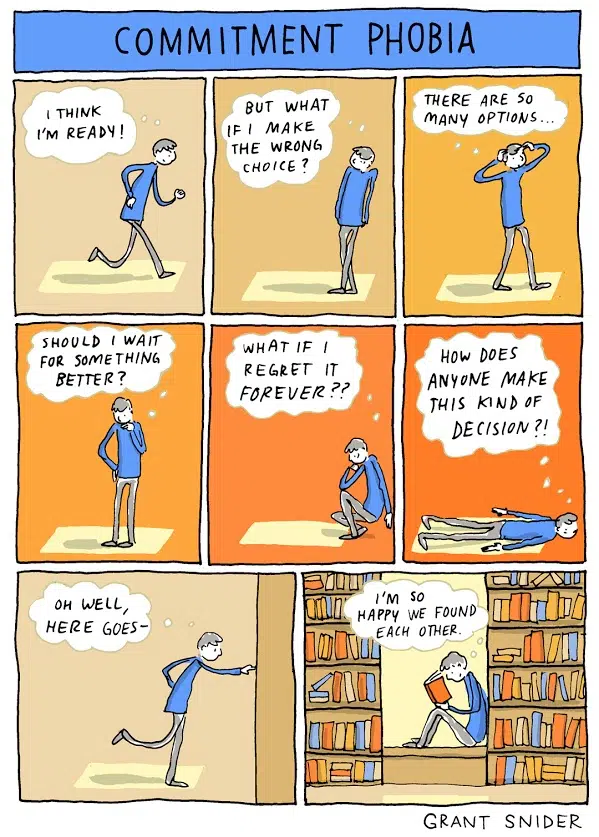 COMMITMENT PHOBIA
I THINK
I'M READY!
BUT WHAT
IF I MAKE
THE WRONG
CHOICE?
THERE ARE SO
MANY OPTIONS...
SHOULD I WAIT
FOR SOMETHING
BETTER?
WHAT IF I
REGRET IT
FOREVER??
HOW DOES
ANYONE MAKE
THIS KIND OF
DECISION?!
OH WELL,
HERE GOES-
I'M SO
HAPPY WE FOUND
EACH OTHER.
GRANT SNIDER